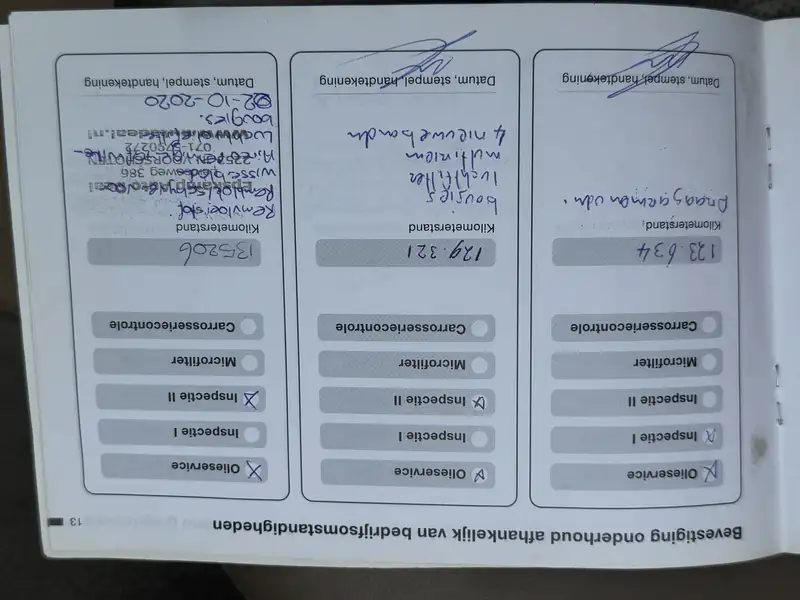 Bevestiging onderhoud afhankelijk van bedrijfsomstandigheden
13
Olieservice
Inspectie I
Inspectie II
Microfilter
Carrosseriecontrole
123.634
Kilometerstand
Draagarmen vdn.
Datum, stempel, handtekening
Olieservice
Inspectie I
Inspectie II
Microfilter
Carrosseriecontrole
129.321
Kilometerstand
bougies
luchtfilter
multiriem
4 nieuwe banden
Datum, stempel, handtekening
Olieservice
Inspectie I
Inspectie II
Microfilter
Carrosseriecontrole
135206
Kilometerstand
Remvloeistof.
wisserbladen
386
VOORSCHOTEN
Luchtfilter
bougies.
02-10-2020
Datum, stempel, handtekening